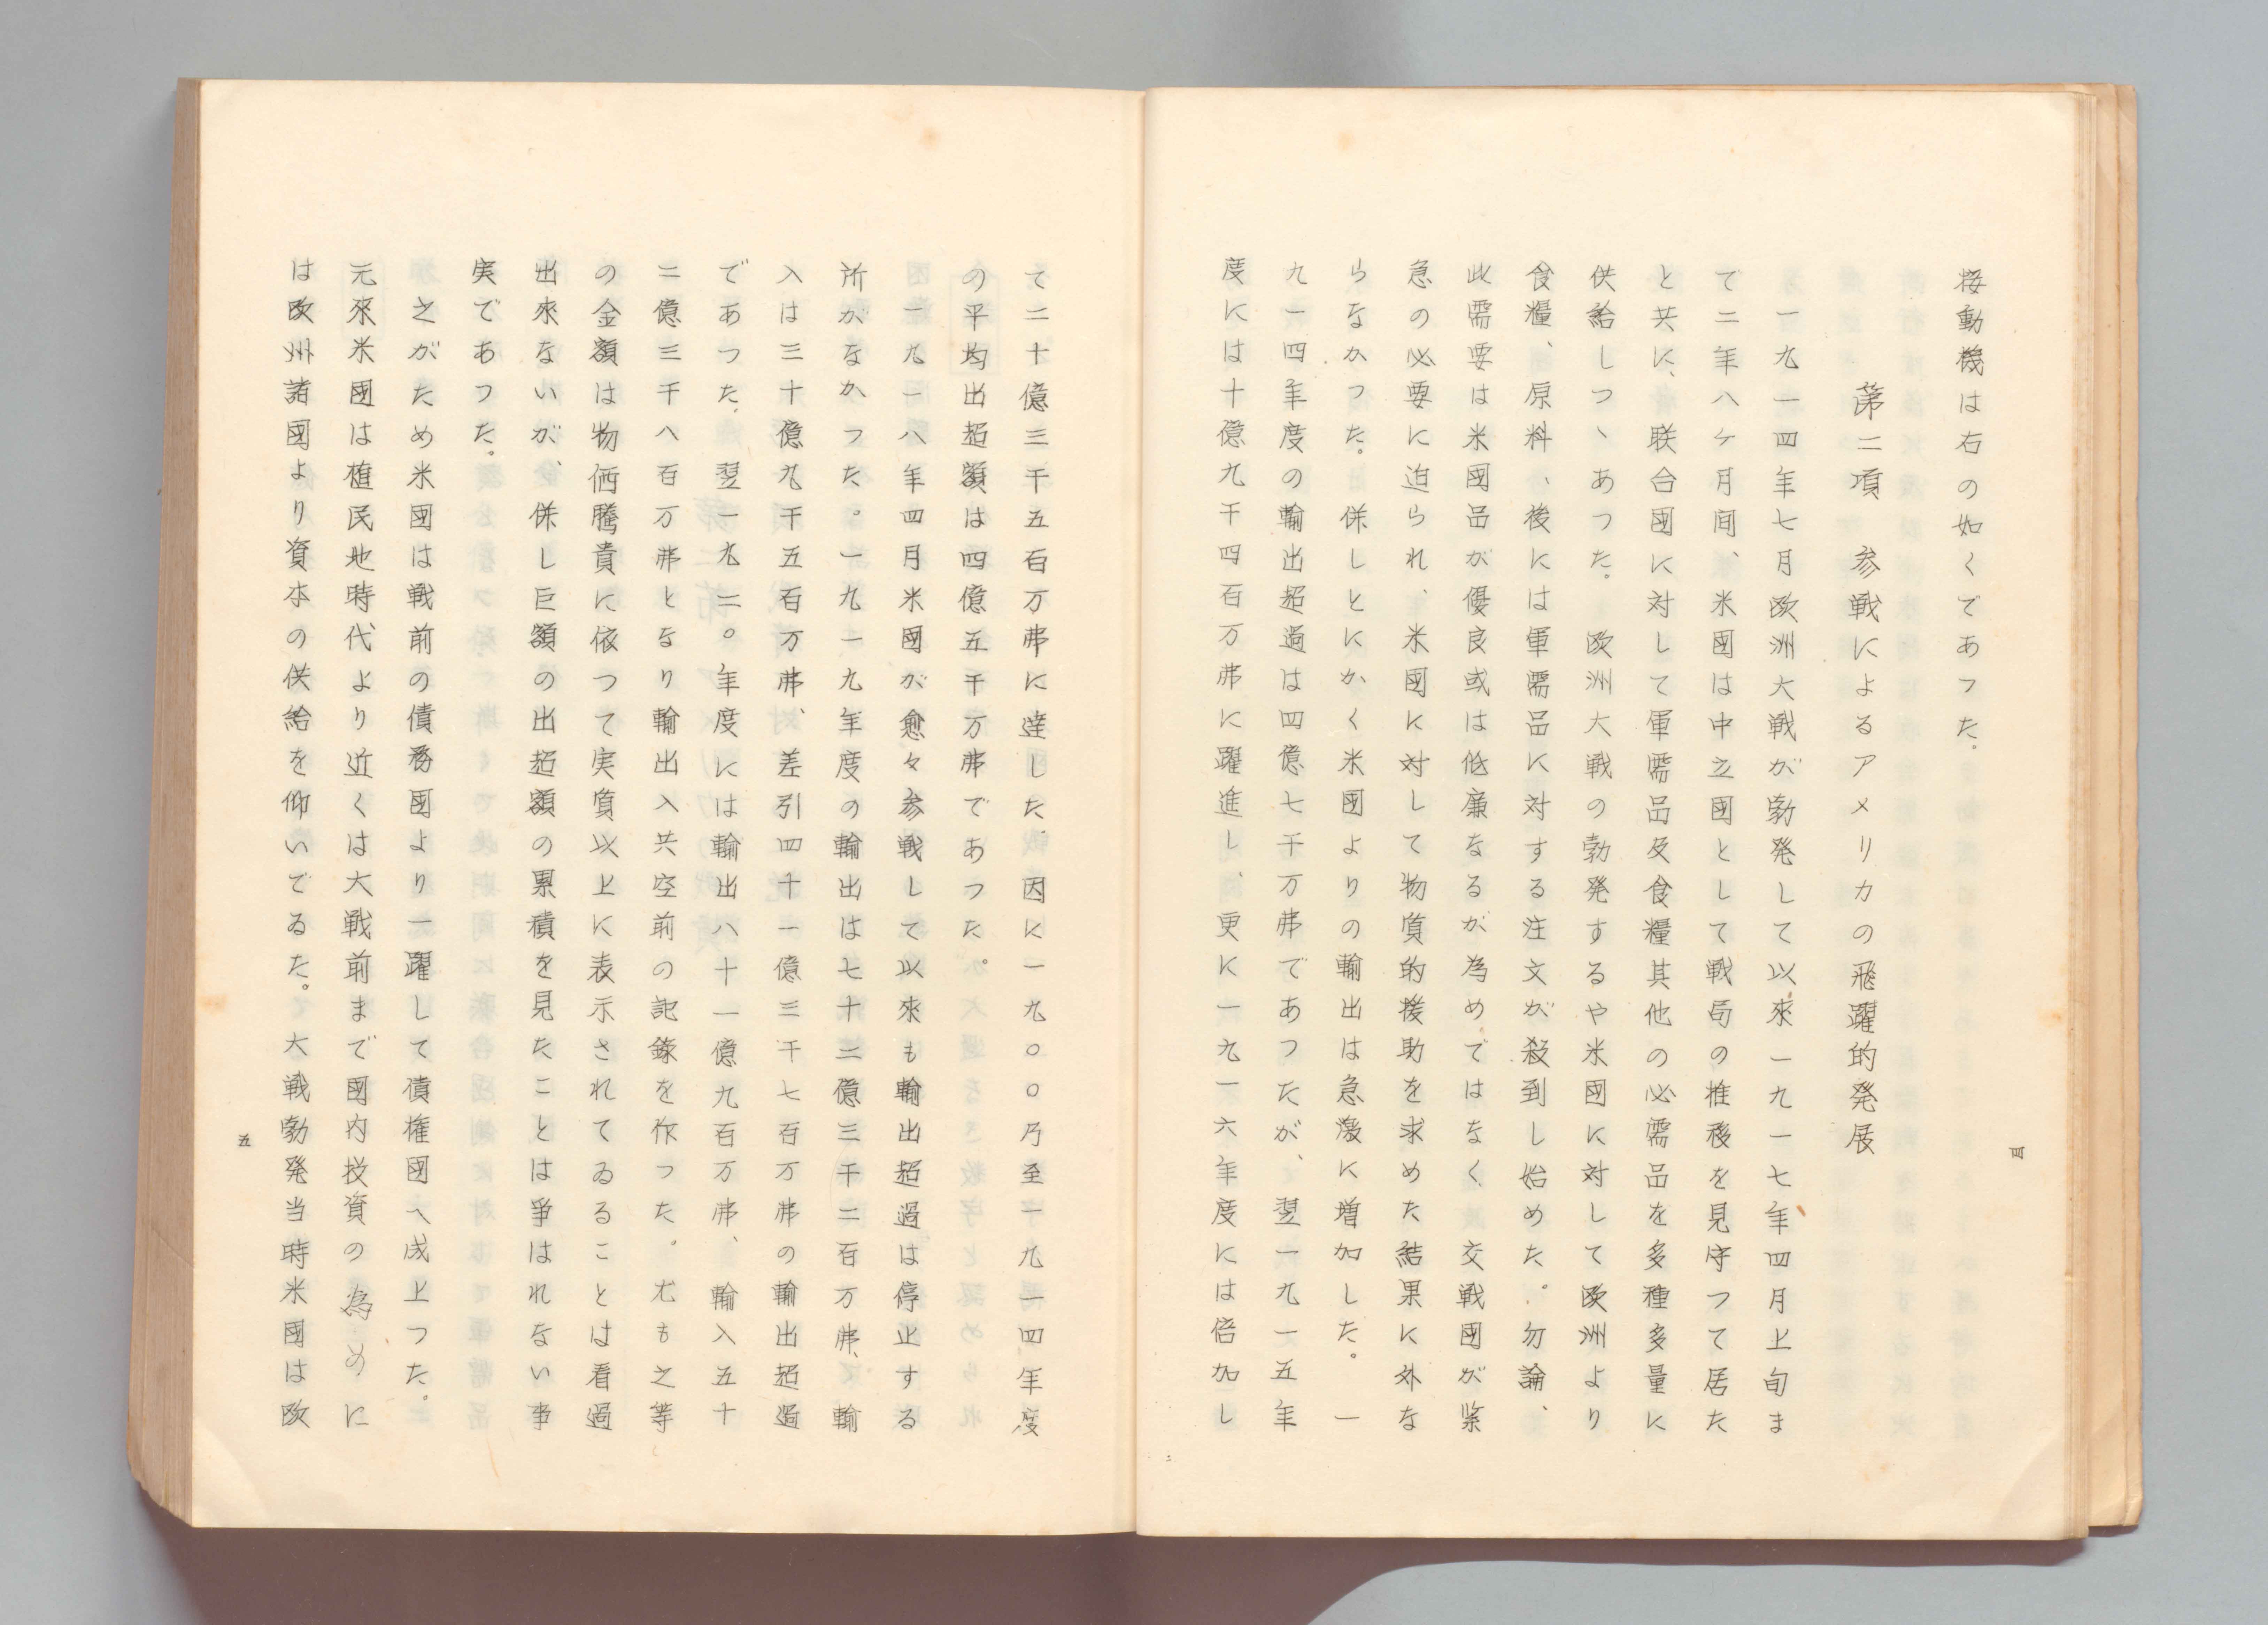 接動機は右の如くであつた。
第二項　参戦によるアメリカの飛躍的発展
一九一四年七月欧洲大戦が勃発して以來一九一七年四月上旬ま
で二年八ケ月间、米國は中立國として戦局の推移を見守つて居た
と共に、联合國に対して軍需品及食糧其他の必需品を多種多量に
供給しつゝあつた。欧洲大戦の勃発するや米國に対して欧洲より
食糧、原料、後には軍需品に対する注文が殺到し始めた。勿論、
此需要は米國品が優良或は低廉なるが為めではなく交戦國が緊
急の必要に迫られ、米國に対して物質的援助を求めた結果に外な
らなかつた。併しとにかく米國よりの輸出は急激に増加した。一
九一四年度の輸出超過は四億七千万弗であつたが、翌一九一五年
度には十億九千四百万弗に躍進し、更に一九一六年度には倍加し
四
て二十億三千五百万弗に達した、因に一九〇〇乃至一九一四年度
の平均出超額は四億五千万弗であつた。
一九一八年四月米國が愈々参戦して以來も輸出超過は停止する
所がなかつた。一九一九年度の輸出は七十二億三千二百万弗、輸
入は三十億九千五百万弗、差引四十一億三千七百万弗の輸出超過
であつた、翌一九二〇年度には輸出八十一億九百万弗、輸入五十
二億三千八百万弗となり輸出入共空前の記錄を作つた。尤も之等
の金額は物価騰貴に依つて実質以上に表示されてゐることは看過
出來ないが、併し巨額の出超額の累積を見たことは爭はれない事
実であつた。
之がため米國は戦前の債務國より一躍して債権國へ成上つた。
元來米國は植民地時代より近くは大戦前まで國内投資の為めに
は欧州諸國より資本の供給を仰いでゐた。大戦勃発当時米國は欧
五